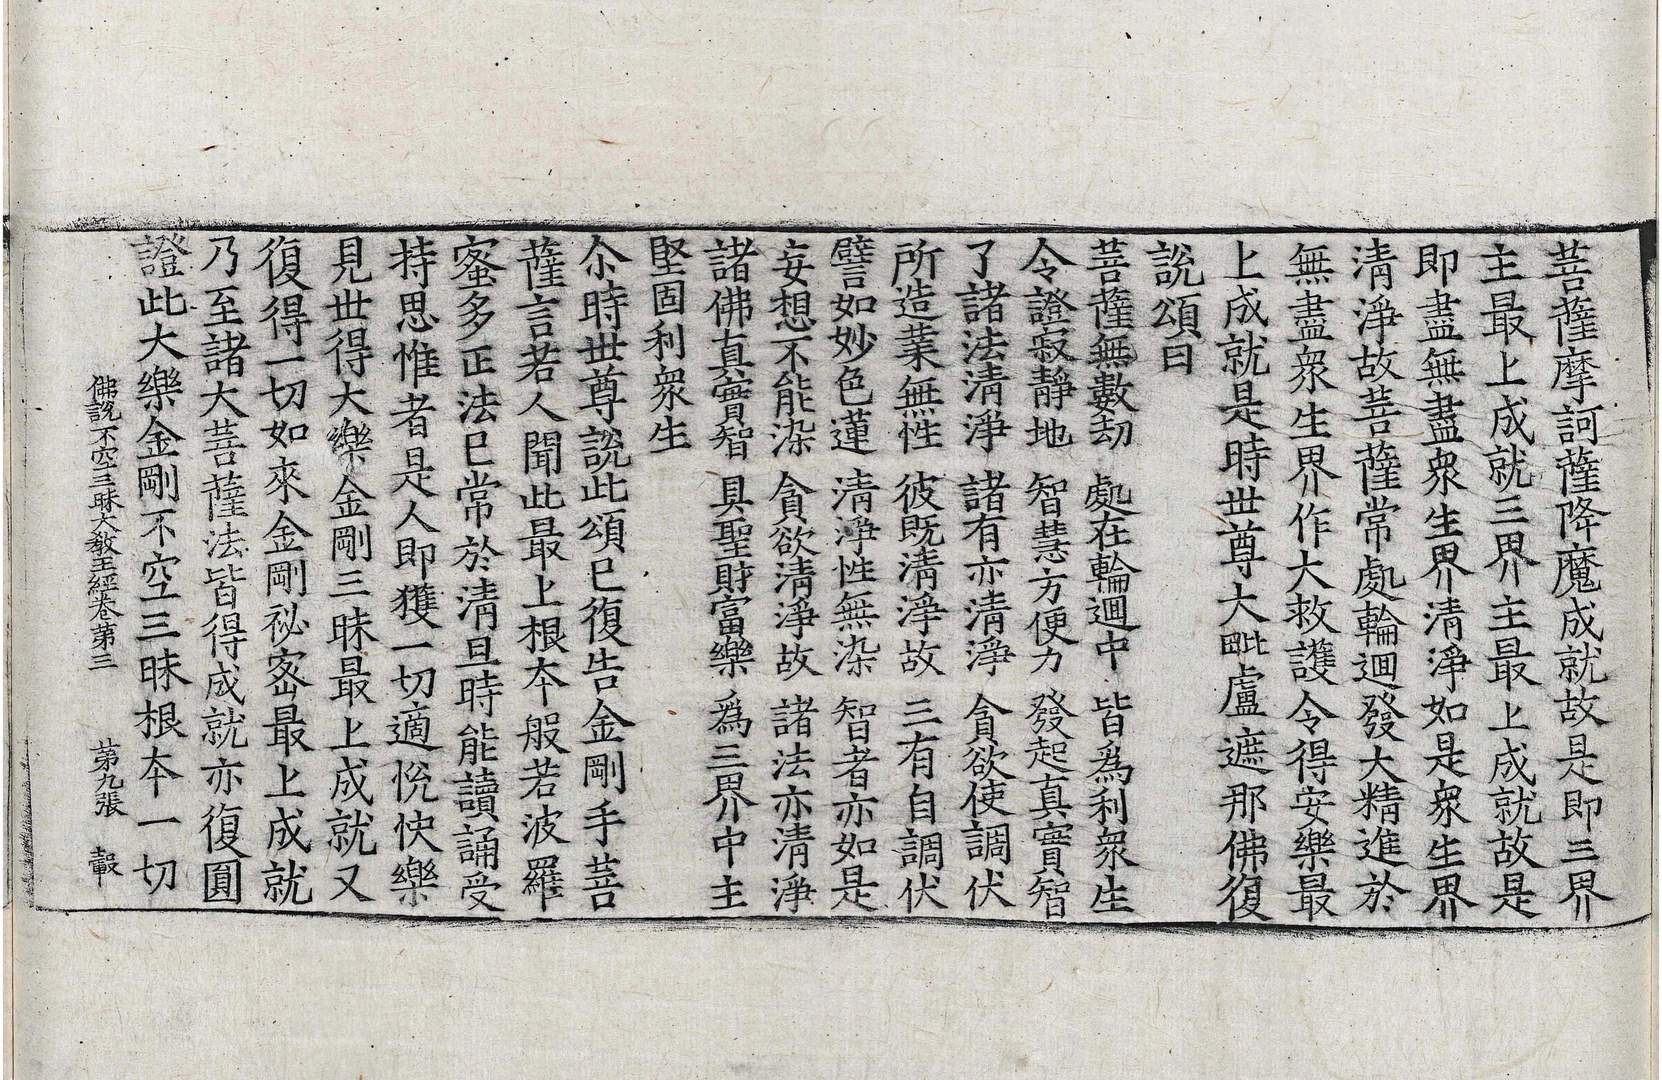 菩薩摩訶薩降魔成就故是即三界
主最上成就三界主最上成就故是
即盡無盡衆生界清淨如是衆生界
清淨故菩薩常處輪迴發大精進於
無盡衆生界作大救護令得安樂最
上成就是時世尊大毗盧遮那佛復
說頌曰
菩薩無數劫 處在輪迴中 皆爲利衆生
令證寂靜地 智慧方便力 發起真實智
了諸法清淨 諸有亦清淨 貪欲使調伏
所造業無性 彼既清淨故 三有自調伏
譬如妙色蓮 清淨性無染 智者亦如是
妄想不能染 貪欲清淨故 諸法亦清淨
諸佛真實智 具聖財富樂 爲三界中主
堅固利衆生
尒時世尊說此頌已復告金剛手菩
薩言若人聞此最上根本般若波羅
蜜多正法已常於清旦時能讀誦受
持思惟者是人即獲一切適悅快樂
見世得大樂金剛三昧最上成就又
復得一切如來金剛祕密最上成就
乃至諸大菩薩法皆得成就亦復圓
證此大樂金剛不空三昧根本一切
佛說不空三昧大教王經卷第三 第九張 轂